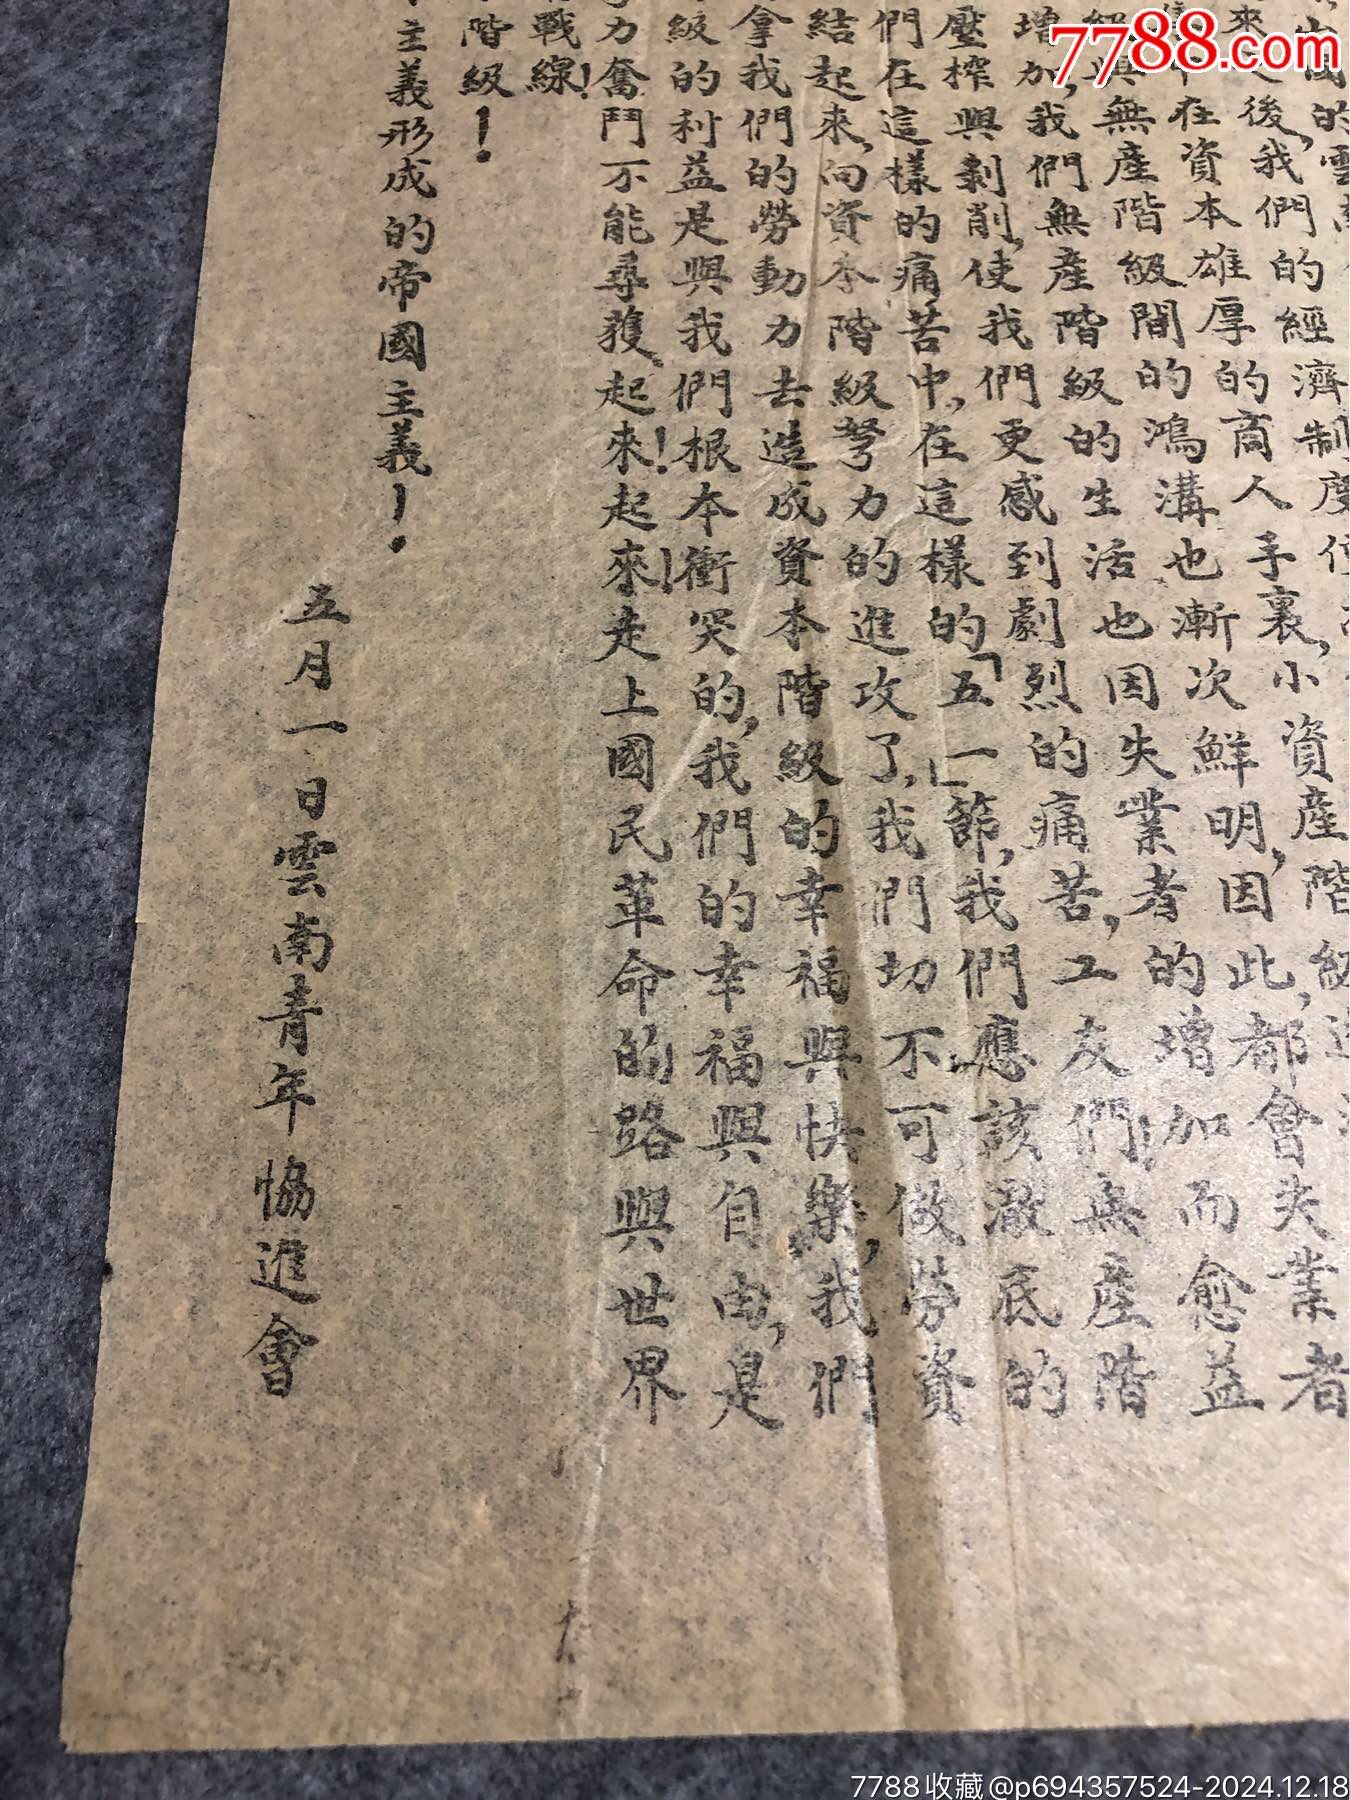 7788.com
國的雲
來之後,我們的經濟制度
中在資本雄厚的商人手裏,小資產階級
級與無產階級間的鴻溝也漸次鮮明,因此,都會失業者
增加,我們無產階級的生活也因失業者的增加而愈益
壓榨與剝削,使我們更感到劇烈的痛苦,工友們!無產階
們在這樣的痛苦中,在這樣的「五一」節,我們應該澈底的
結起來,向資本階級努力的進攻了,我們切不可做勞資
拿我們的勞動力去造成資本階級的幸福與快樂,我們
級的利益是與我們根本衝突的,我們的幸福與自由,是
力奮鬥不能尋獲,起來!起來!走上國民革命的路與世界
戰線!
階級!
主義形成的帝國主義!
五月一日雲南青年協進會
7788收藏@p694357524-2024.12.18